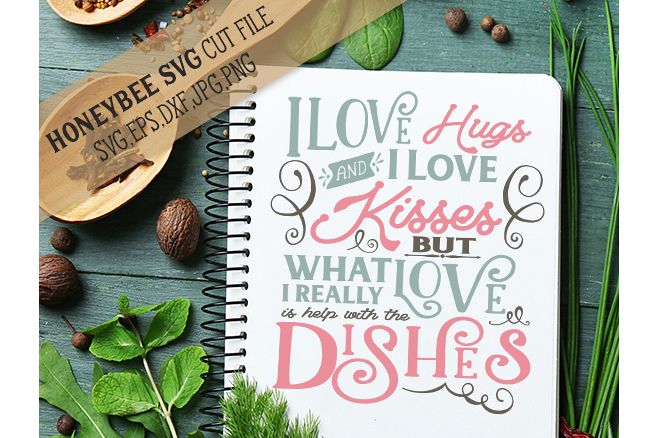 HONEYBEE SVG CUT FILE
SVG,EPS,DXF,JPG,PNG
I LOVE Hugs
AND I LOVE
Kisses
BUT
WHAT LOVE
I REALLY
is help with the
DISHES